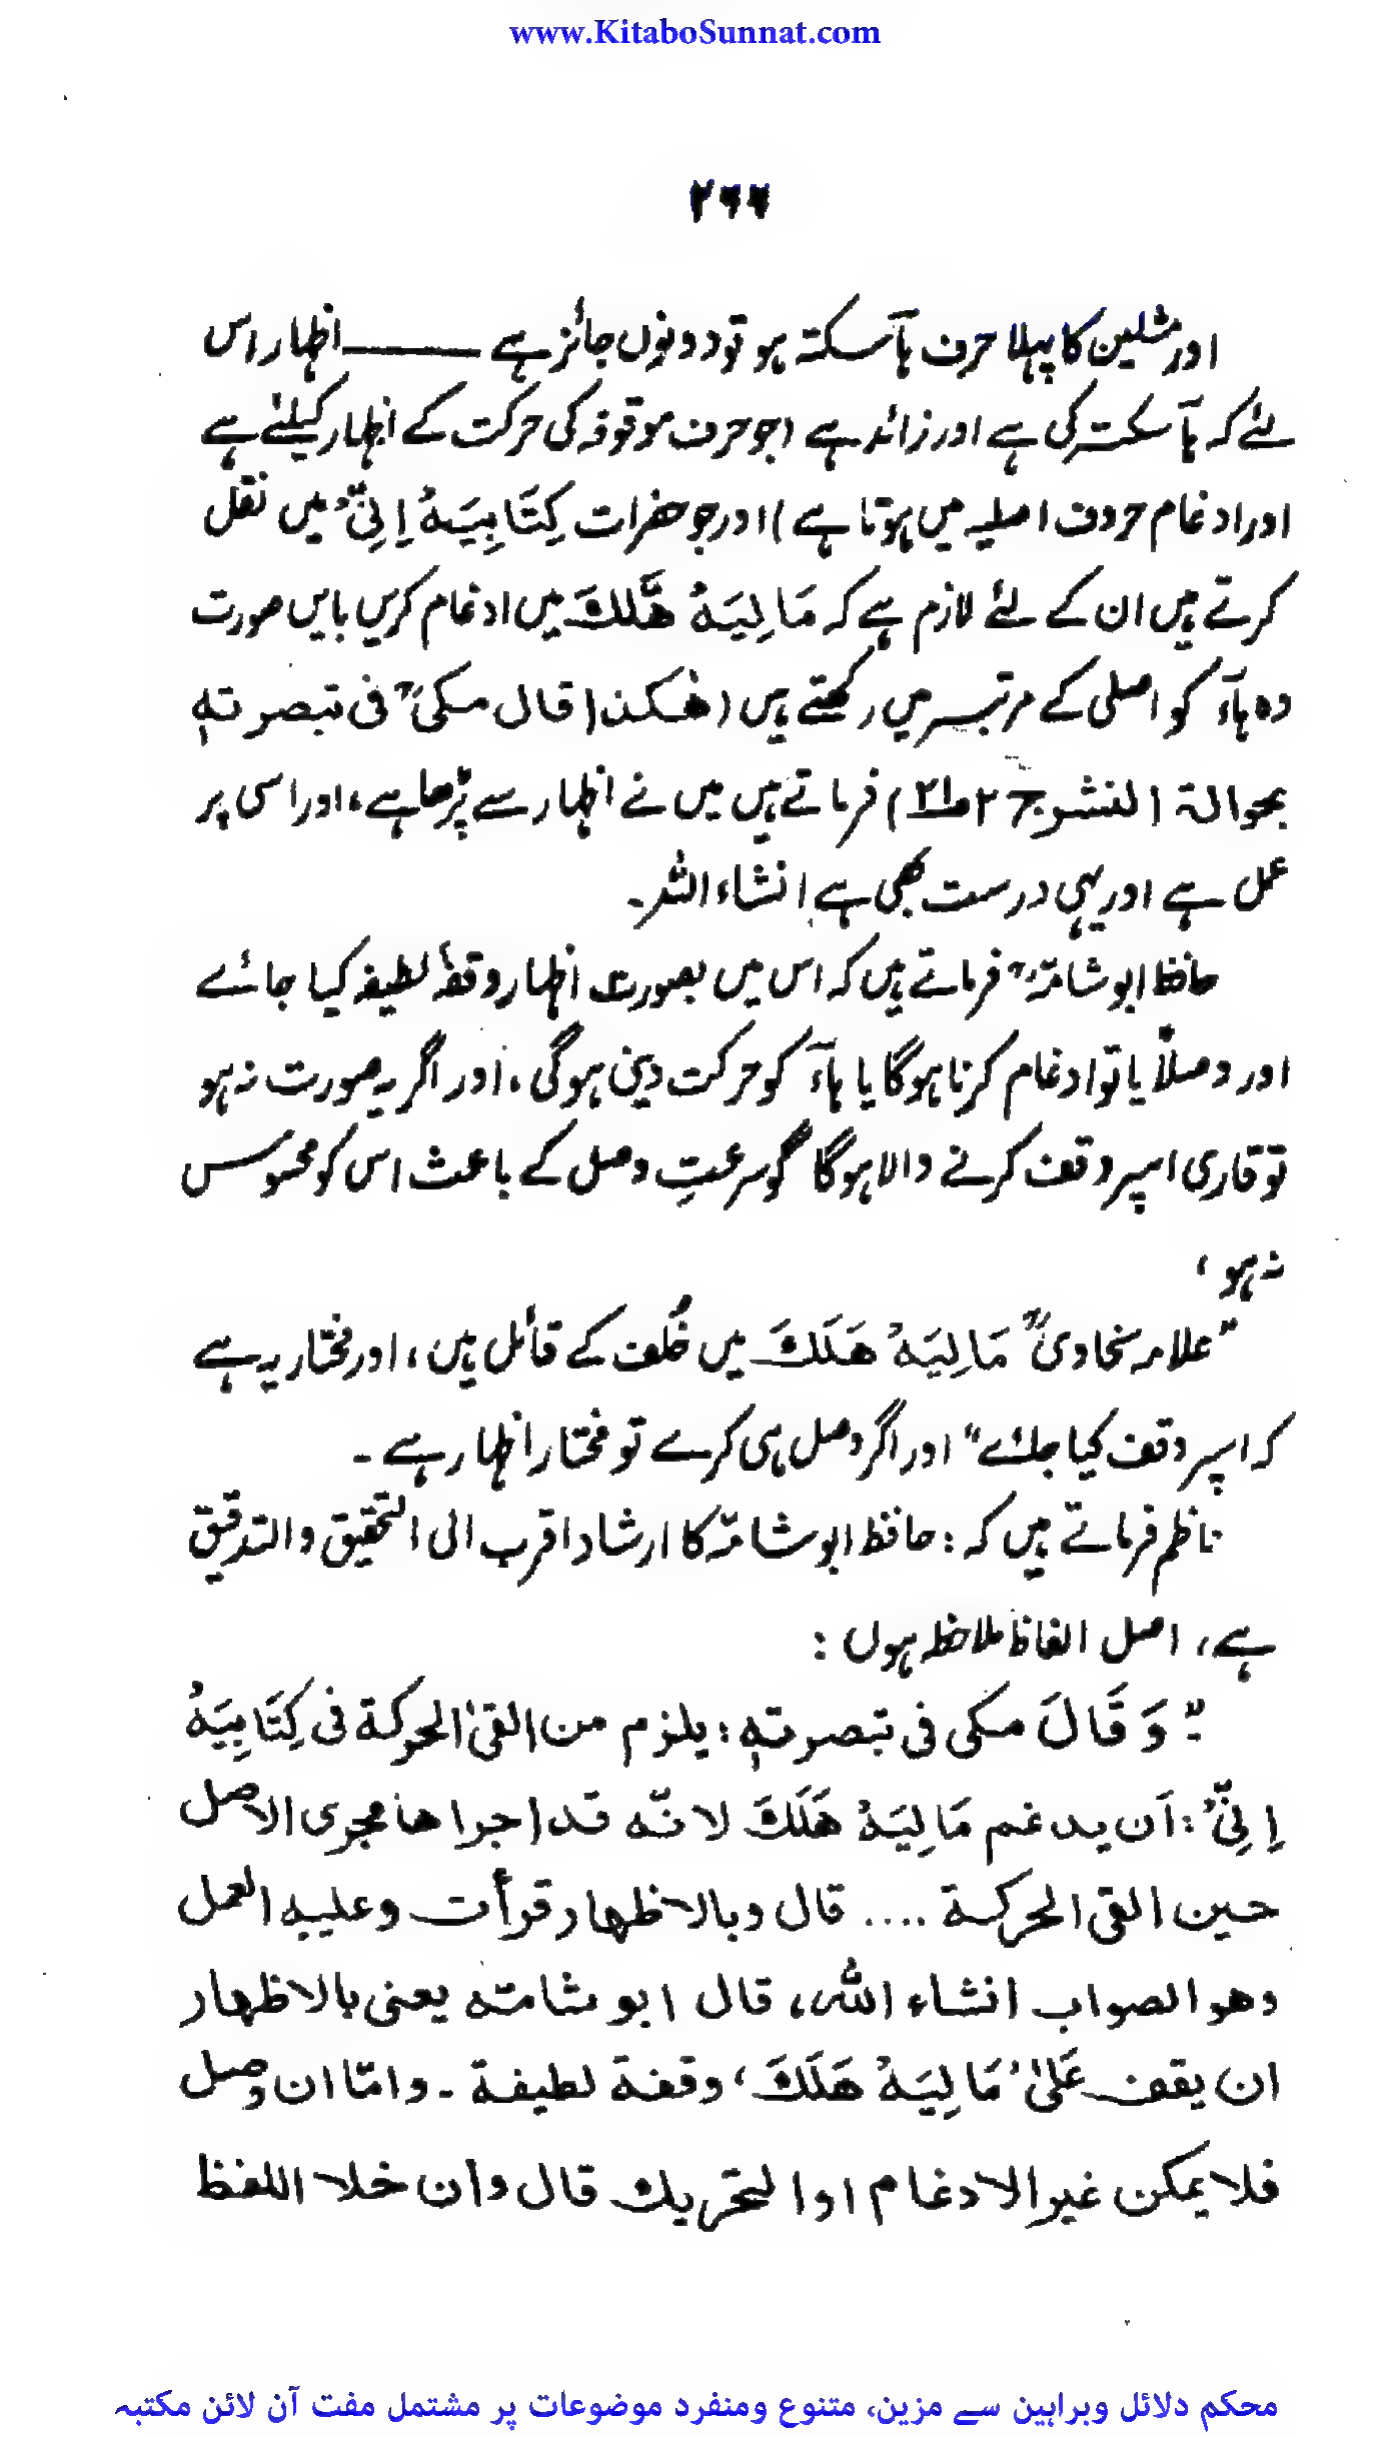 www.KitaboSunnat.com
۲۶۶
اور مثلین کا پہلا حرف ہآ سکتہ ہو تو دونوں جائز ہے ـــــــ اظہار اس
لئے کہ ہآ سکتہ کی ہے اور زائد ہے (جو حرف موقوفہ کی حرکت کے اظہار کیلئے ہے
اور ادغام حروف اصلیہ میں ہوتا ہے) اور جو حضرات کِتَابِیَہْ اِنِّیْ میں نقل
کرتے ہیں ان کے لئے لازم ہے کہ مَالِیَہْ هَّلَكَ میں ادغام کریں بایں صورت
وہ ہآء کو اصلی کے مرتبہ میں رکھتے ہیں (هٰكذا قال مكیؒ فی تبصرتهٖ
بحوالۃ النشر ج۲ ص۲۱) فرماتے ہیں میں نے اظہار سے پڑھا ہے، اور اسی پر
عمل ہے اور یہی درست بھی ہے انشاء اللہ۔
حافظ ابو شامۃؒ فرماتے ہیں کہ اس میں بصورت اظہار وقفۂ لطیفہ کیا جائے
اور وصلاً یا تو ادغام کرنا ہوگا یا ہآء کو حرکت دینی ہوگی، اور اگر یہ صورت نہ ہو
تو قاری اسپر وقف کرنے والا ہوگا گو سرعتِ وصل کے باعث اس کو محسوس
نہ ہو،
"علامہ سخاویؒ مَالِیَہْ هَلَكَ میں خُلف کے قائل ہیں، اور مختار یہ ہے
کہ اسپر وقف کیا جائے" اور اگر وصل ہی کرے تو مختار اظہار ہے۔
ناظم فرماتے ہیں کہ: حافظ ابو شامۃ کا ارشاد اقرب الی التحقیق والتدقیق
ہے، اصل الفاظ ملاحظہ ہوں:
"وَقَالَ مکی فی تبصرتهٖ: یلزم من القیٰ الحركة فی كِتَابِیَهْ
اِنِّیْ: اَن یدغم مَالِیَهْ هَلَكَ لانّه قد اجراها مجری الاصل
حین القی الحركة .... قال وبالاظهار قرأت وعلیه العمل
وهو الصواب انشاء الله، قال ابو شامته یعنی بالاظهار
ان یقف عَلیٰ مَالِیَهْ هَلَكَ، وقفة لطیفة۔ وامّا ان وصل
فلا یمكن غیر الادغام او التحریك قال وأن خلا اللفظ
محکم دلائل وبراہین سے مزین، متنوع ومنفرد موضوعات پر مشتمل مفت آن لائن مکتبہ